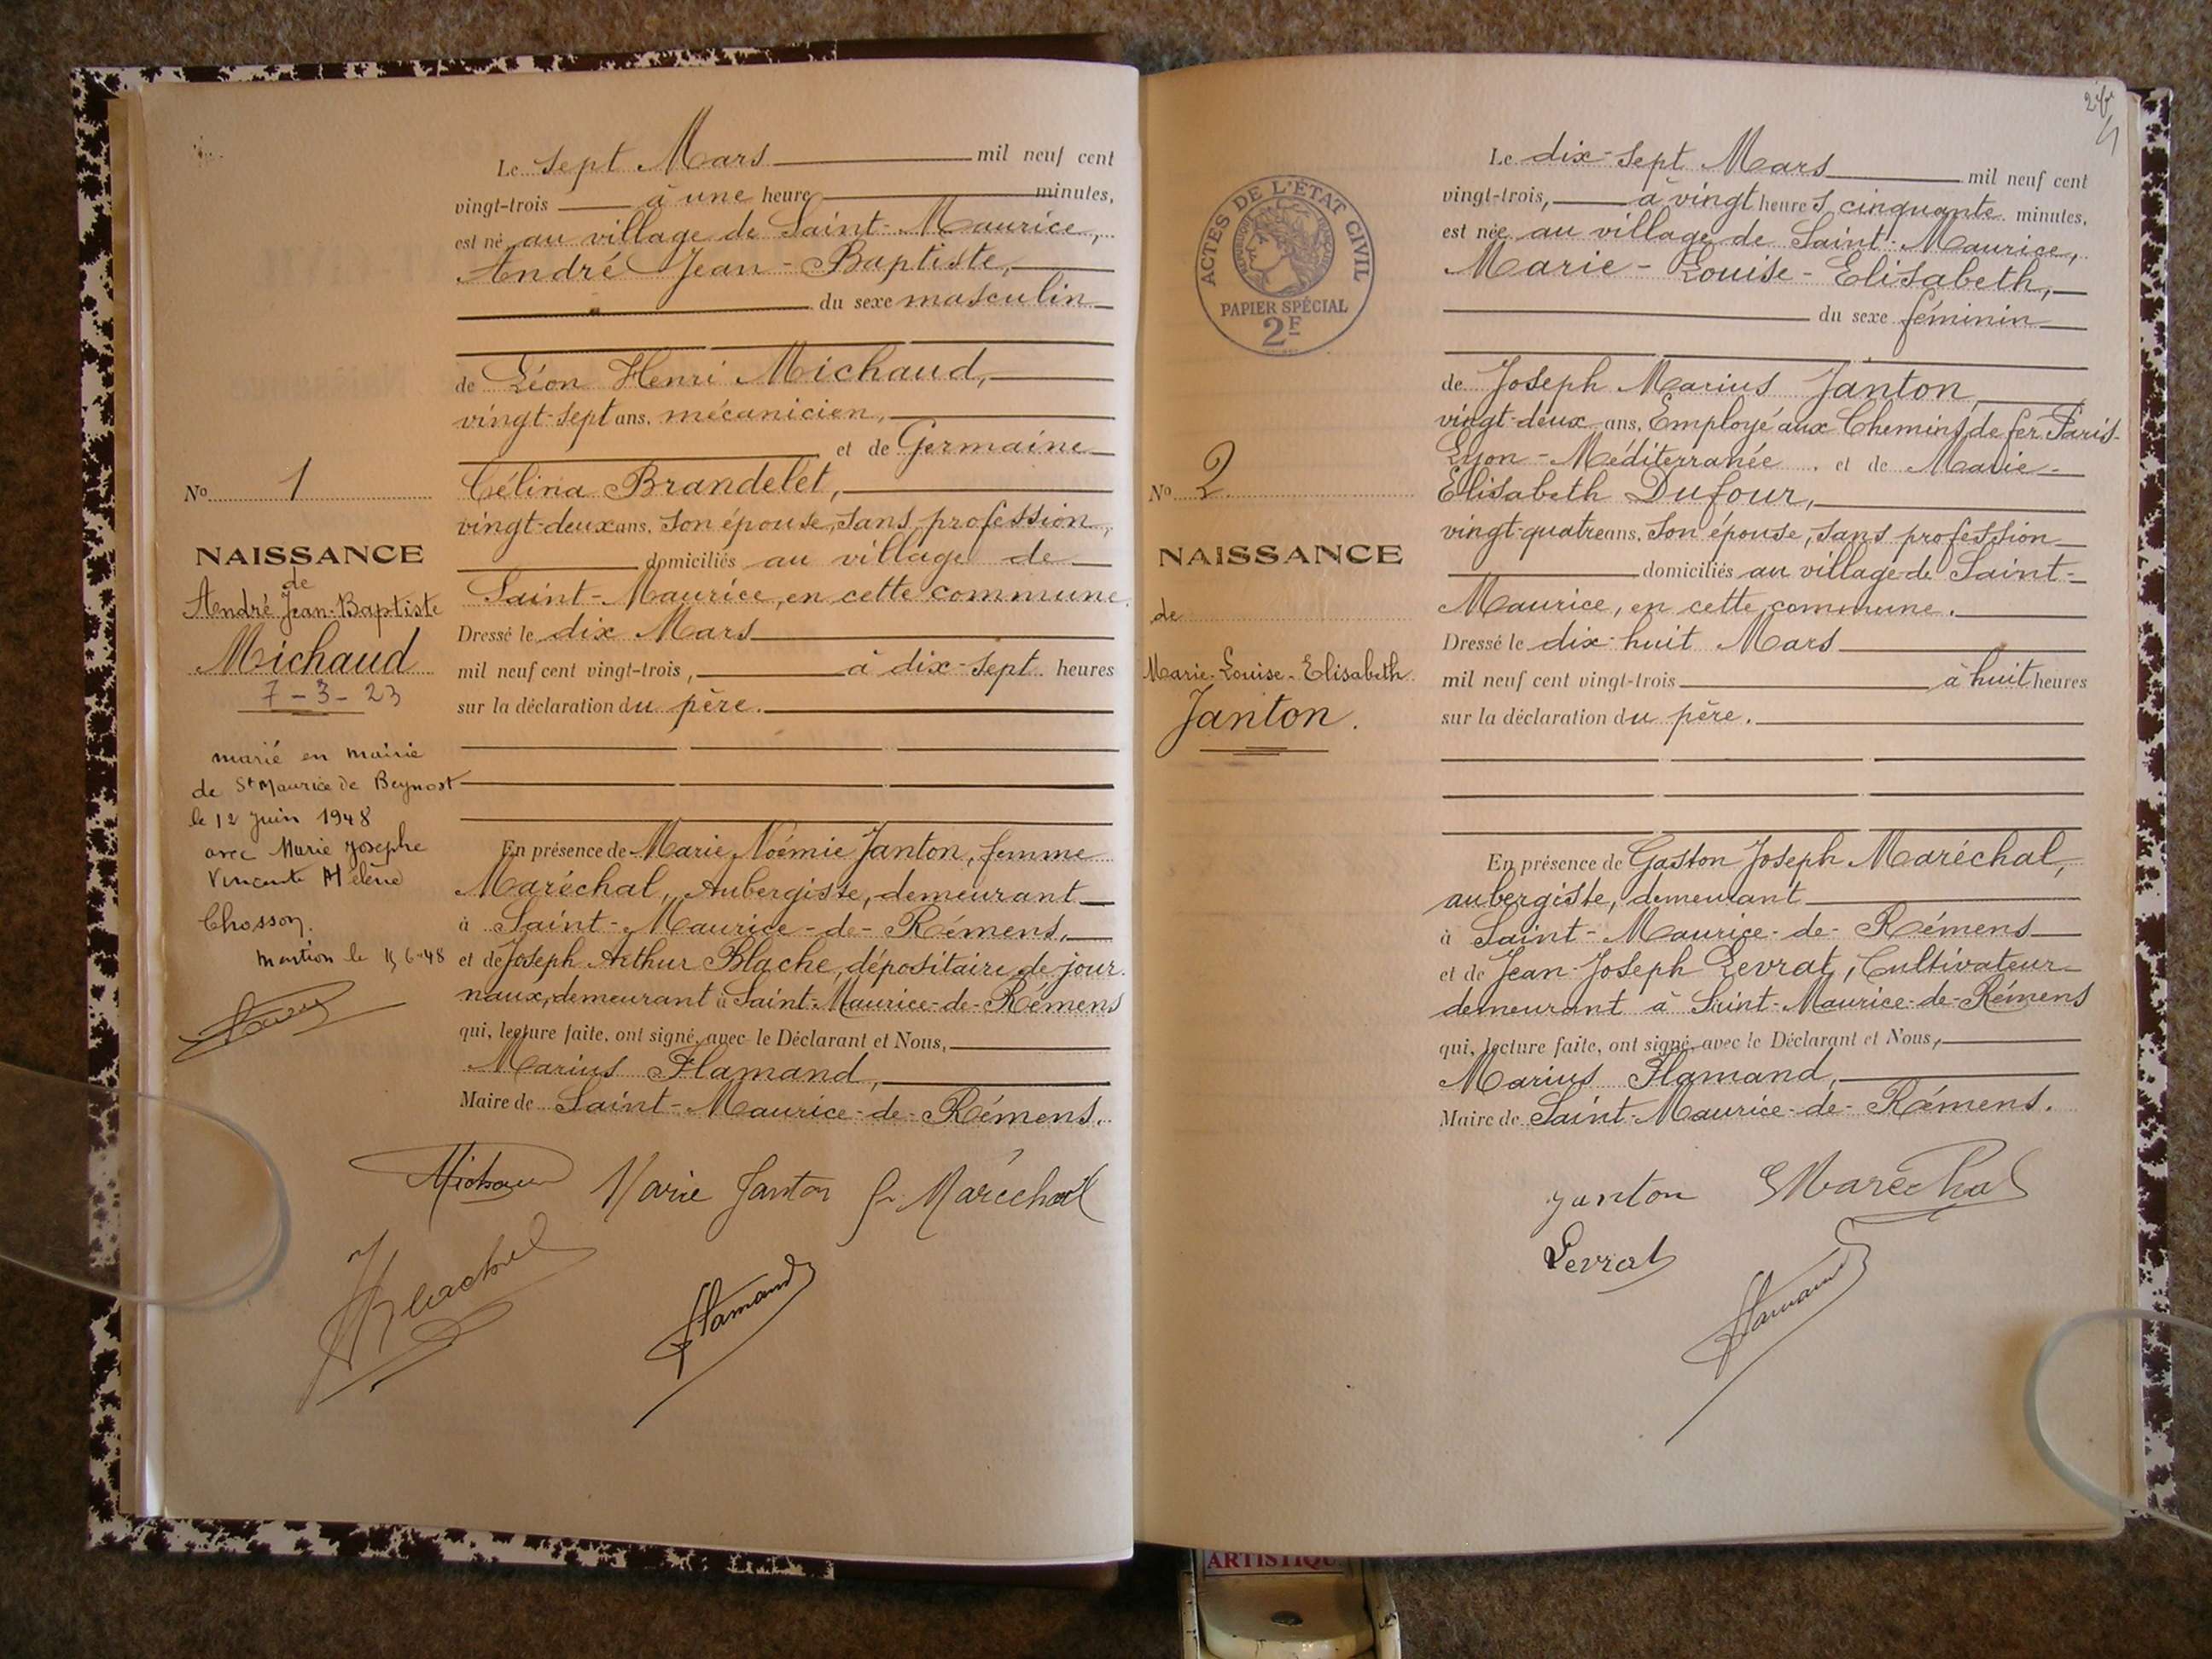 Le sept Mars mil neuf cent
vingt-trois à une heure minutes,
est né au village de Saint-Maurice,
André Jean-Baptiste,
du sexe masculin
de Léon Henri Michaud,
vingt-sept ans, mécanicien,
et de Germaine
Célina Brandelet,
vingt-deux ans, son épouse, sans profession,
domiciliés au village de
Saint-Maurice, en cette commune.
Dressé le dix Mars
mil neuf cent vingt-trois, à dix-sept heures
sur la déclaration du père.
En présence de Marie Noémie Janton, femme
Maréchal, Aubergiste, demeurant
à Saint-Maurice-de-Rémens,
et de Joseph Arthur Blache, dépositaire de jour-
naux, demeurant à Saint-Maurice-de-Rémens
qui, lecture faite, ont signé avec le Déclarant et Nous,
Marius Flamand,
Maire de Saint-Maurice-de-Rémens.
Michaud Marie Janton fe Maréchal
JABlache
Flamand
No 1
NAISSANCE
de
André Jean-Baptiste
Michaud
7-3-23
marié en mairie
de St Maurice de Beynost
le 12 juin 1948
avec Marie Josephe
Vincente Hélène
Chosson.
mention le 15 6-48
Le dix-sept Mars mil neuf cent
vingt-trois, à vingt heures cinquante minutes,
est née au village de Saint-Maurice,
Marie-Louise-Elisabeth,
du sexe féminin
de Joseph Marius Janton
vingt-deux ans, Employé aux Chemins de fer Paris-
Lyon-Méditerranée, et de Marie-
Elisabeth Dufour,
vingt-quatre ans, son épouse, sans profession
domiciliés au village de Saint-
Maurice, en cette commune.
Dressé le dix-huit Mars
mil neuf cent vingt-trois à huit heures
sur la déclaration du père.
En présence de Gaston Joseph Maréchal,
aubergiste, demeurant
à Saint-Maurice-de-Rémens
et de Jean-Joseph Levrat, Cultivateur
demeurant à Saint-Maurice-de-Rémens
qui, lecture faite, ont signé avec le Déclarant et Nous,
Marius Flamand,
Maire de Saint-Maurice-de-Rémens.
Janton GMaréchal
Levrat
Flamand
ACTES DE L'ÉTAT CIVIL
RÉPUBLIQUE FRANÇAISE
PAPIER SPÉCIAL
2F
No 2
NAISSANCE
de
Marie-Louise-Elisabeth
Janton.
ARTISTIQU